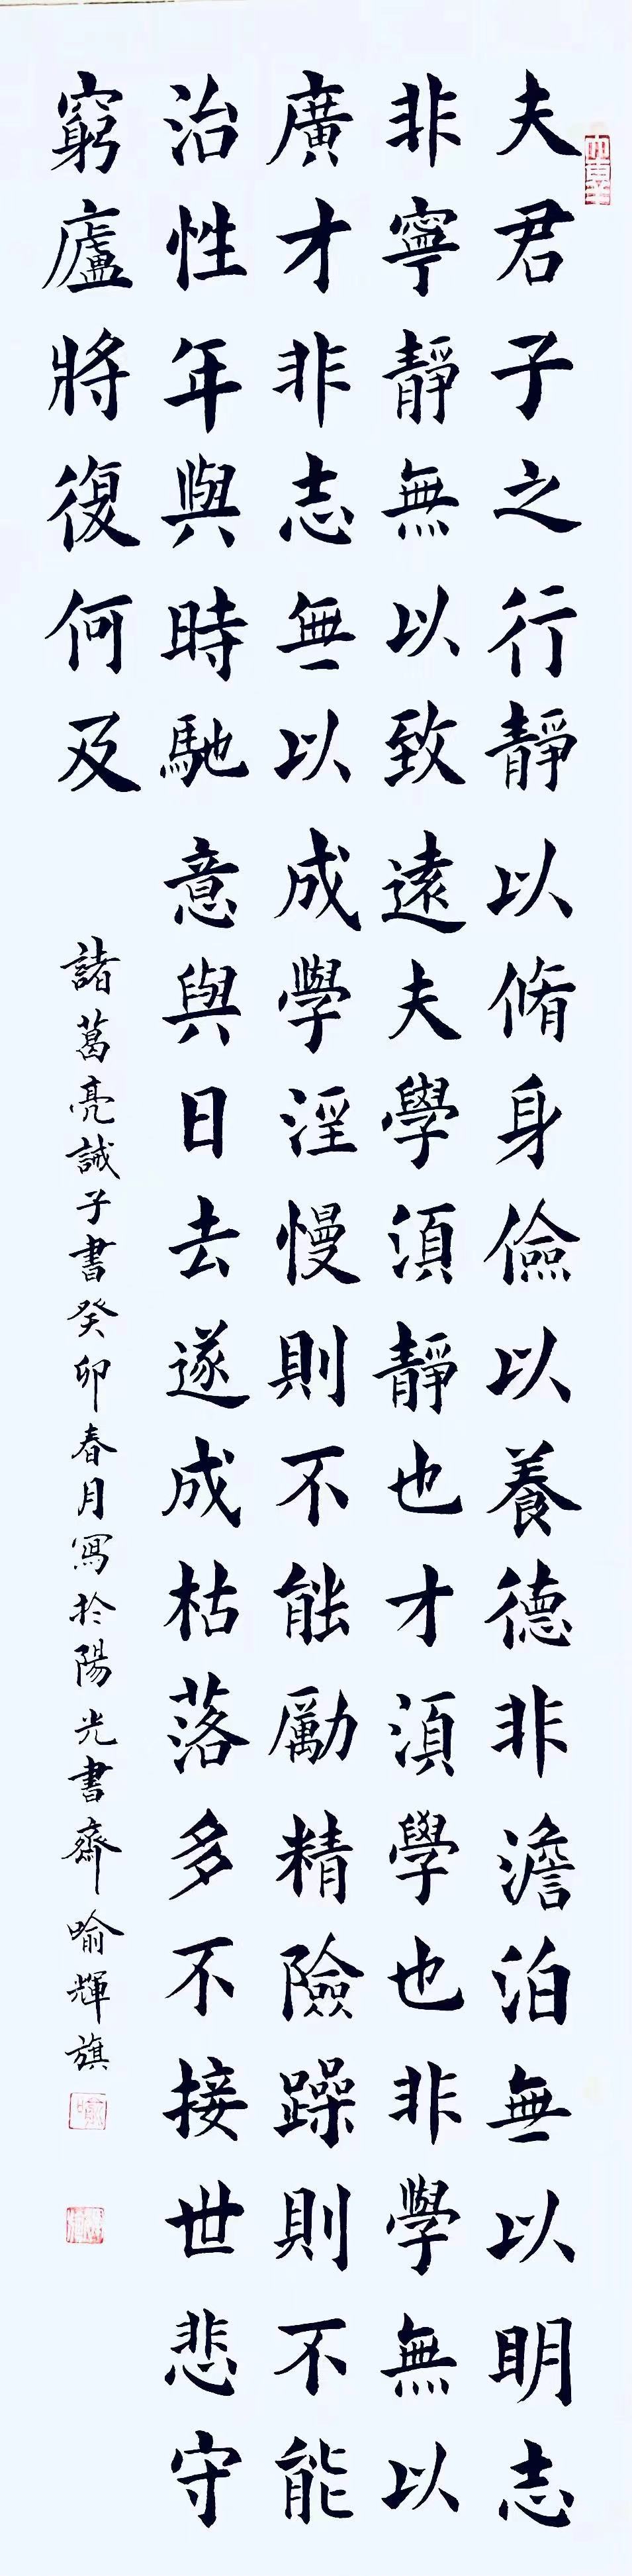 夫君子之行靜以脩身儉以養德非澹泊無以明志
非寧靜無以致遠夫學須靜也才須學也非學無以
廣才非志無以成學淫慢則不能勵精險躁則不能
治性年與時馳意與日去遂成枯落多不接世悲守
窮廬將復何及
諸葛亮誡子書癸卯春月寫於陽光書齋喻輝旗